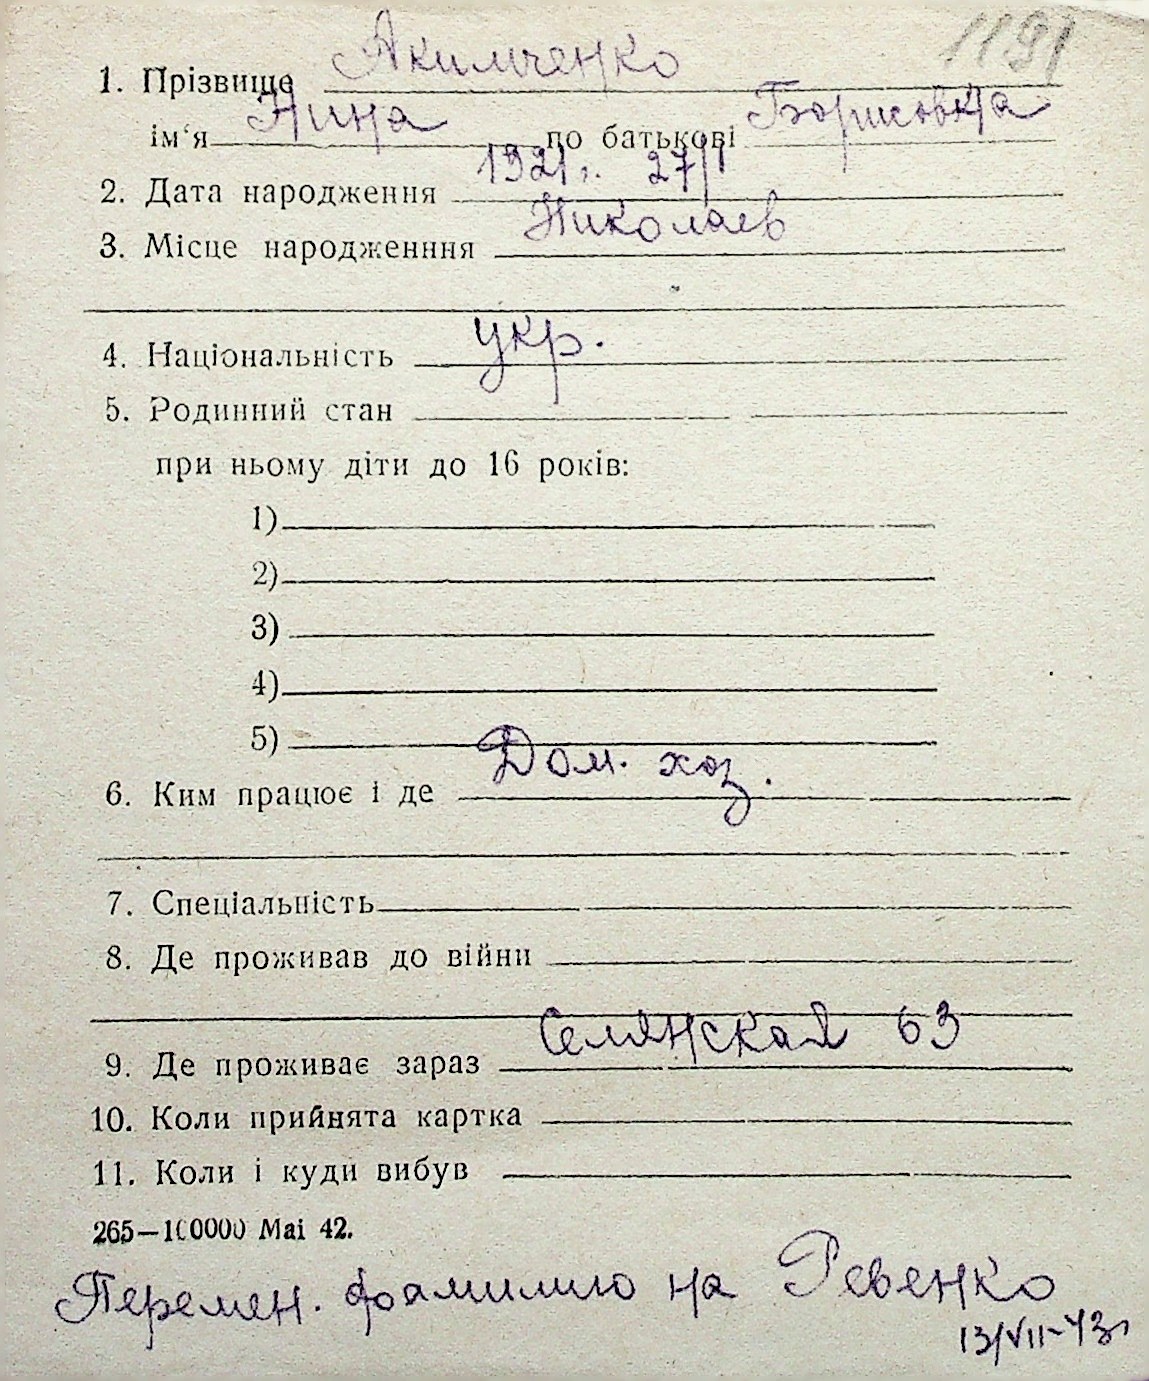 1191
1. Прізвище Якимченко
ім‘я Нина по батькові Борисовна
2. Дата народження 1921 г. 27/I
3. Місце народженння Николаев
4. Національність укр.
5. Родинний стан
при ньому діти до 16 років:
1)
2)
3)
4)
5)
6. Ким працює і де Дом. хоз.
7. Спеціальність
8. Де проживав до війни
9. Де проживає зараз Селянская 63
10. Коли прийнята картка
11. Коли і куди вибув
265—100000 Mai 42.
Перемен. фамилию на Ревенко
13/VII-43г